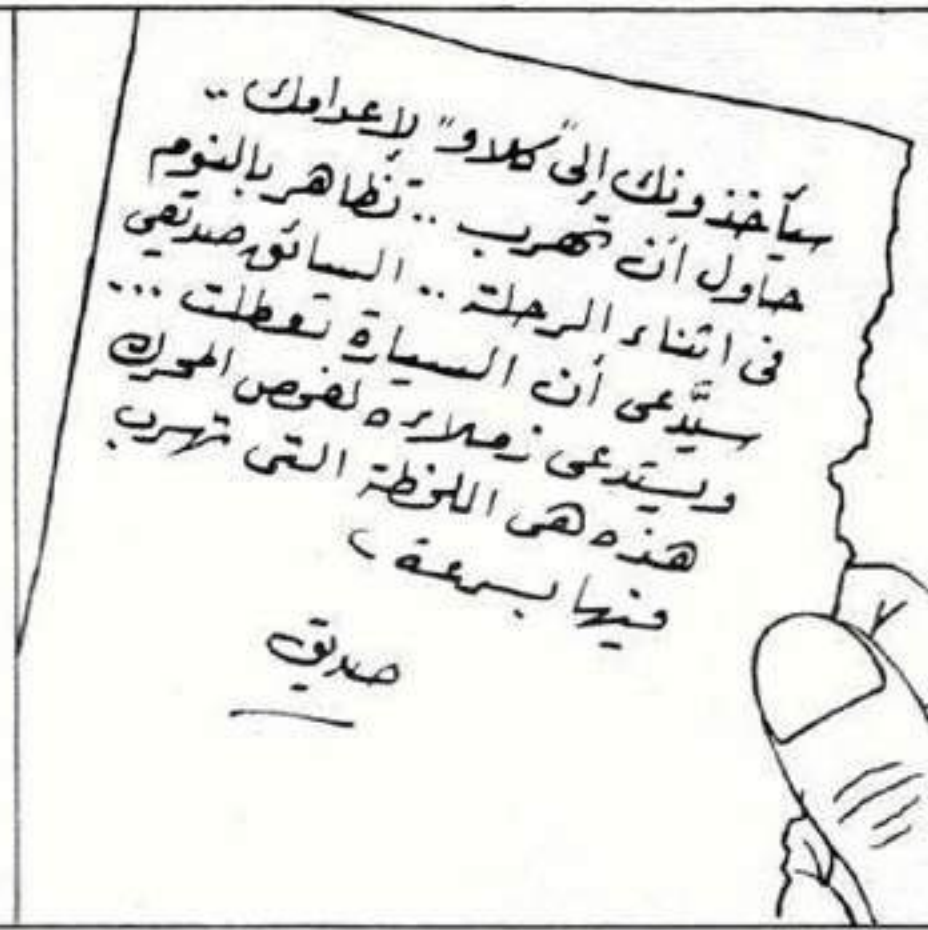 سيأخذونك إلى "كلاو" لإعدامك ..
حاول أن تهرب .. تظاهر بالنوم
فى اثناء الرحلة .. السائق صديقي
سيدّعى أن السيارة تعطلت ...
ويستدعى زملاءه لفحص المحرك
هذه هى اللحظة التى تهرب
فيها بسرعة ،
صديق